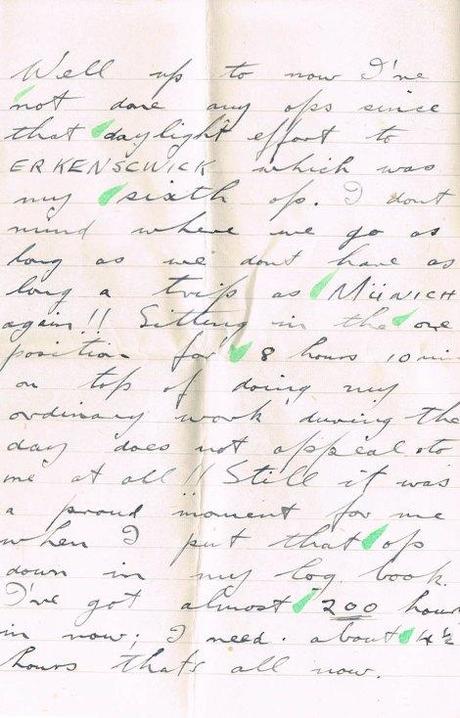 Well up to now I've
not done any ops since
that daylight effort to
ERKENSCWICK which was
my sixth op. I dont
mind where we go as
long as we dont have as
long a trip as MÜNICH
again!! Sitting in the one
position for 8 hours 10 min
on top of doing my
ordinary work during the
day does not appeal to
me at all!! Still it was
a proud moment for me
when I put that op
down in my log book.
I've got almost 200 hours
in now; I need about 4½
hours that's all now.